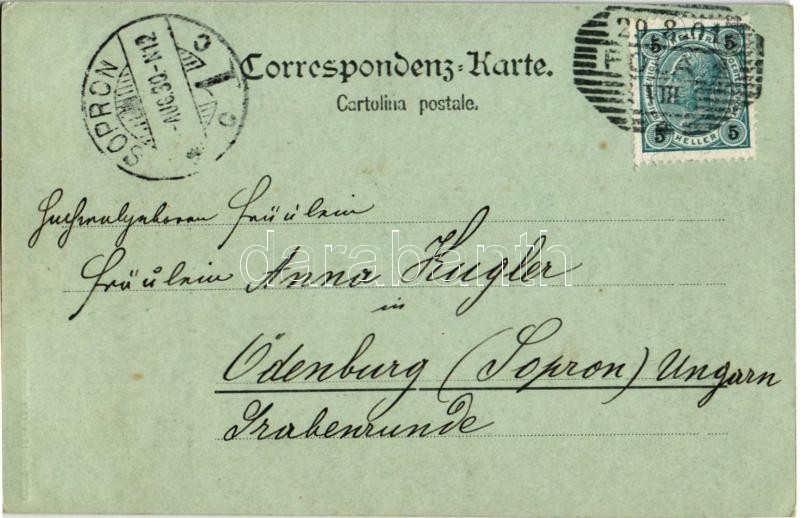 SOPRON
-AUG.30-N12
C 1 C
Correspondenz-Karte.
Cartolina postale.
29 8 01
POLA
1 III
5 5
5 HELLER 5
Hochwolgeboren Fräulein
Fräulein Anna Kugler
in
Ödenburg (Sopron) Ungarn
Grabenrunde
darabanth